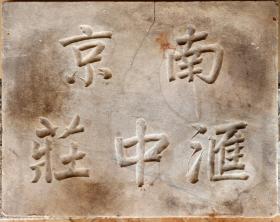 南京
滙中莊